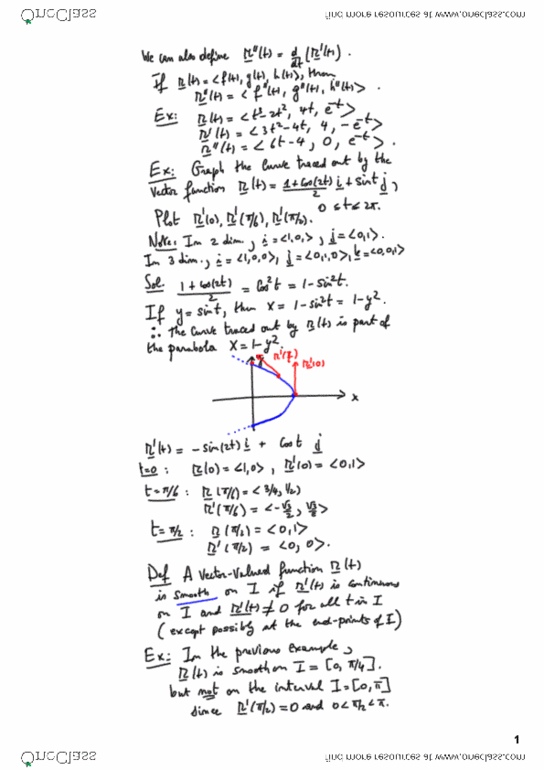 OneClass
find more resources at www.oneclass.com
We can also define r"(t) = d/dt (r'(t)).
If r(t) = <f(t), g(t), h(t)>, then
r"(t) = <f"(t), g"(t), h"(t)>.
Ex: r(t) = <t³-2t², 4t, e^-t>
r'(t) = <3t²-4t, 4, -e^-t>
r"(t) = <6t-4, 0, e^-t>.
Ex: Graph the curve traced out by the
vector function r(t) = (1+cos(2t))/2 i + sint j,
0 ≤ t ≤ 2π.
Plot r'(0), r'(π/6), r'(π/2).
Note: In 2 dim., i = <1,0>, j = <0,1>.
In 3 dim., i = <1,0,0>, j = <0,1,0>, k = <0,0,1>
Sol. (1+cos(2t))/2 = cos²t = 1-sin²t.
If y = sint, then x = 1-sin²t = 1-y².
∴ The curve traced out by r(t) is part of
the parabola x = 1-y².
r'(0)
x
r'(t) = -sin(2t) i + cost j
t=0: r(0) = <1,0>, r'(0) = <0,1>
t=π/6: r(π/6) = <3/4, 1/2>
r'(π/6) = <-√3/2, √3/2>
t=π/2: r(π/2) = <0,1>
r'(π/2) = <0, 0>.
Def A vector-valued function r(t)
is smooth on I if r'(t) is continuous
on I and r'(t) ≠ 0 for all t in I
(except possibly at the end-points of I)
Ex: In the previous example,
r(t) is smooth on I = [0, π/4].
but not on the interval I = [0,π]
since r'(π/2) = 0 and 0<π/2<π.
1
OneClass
find more resources at www.oneclass.com